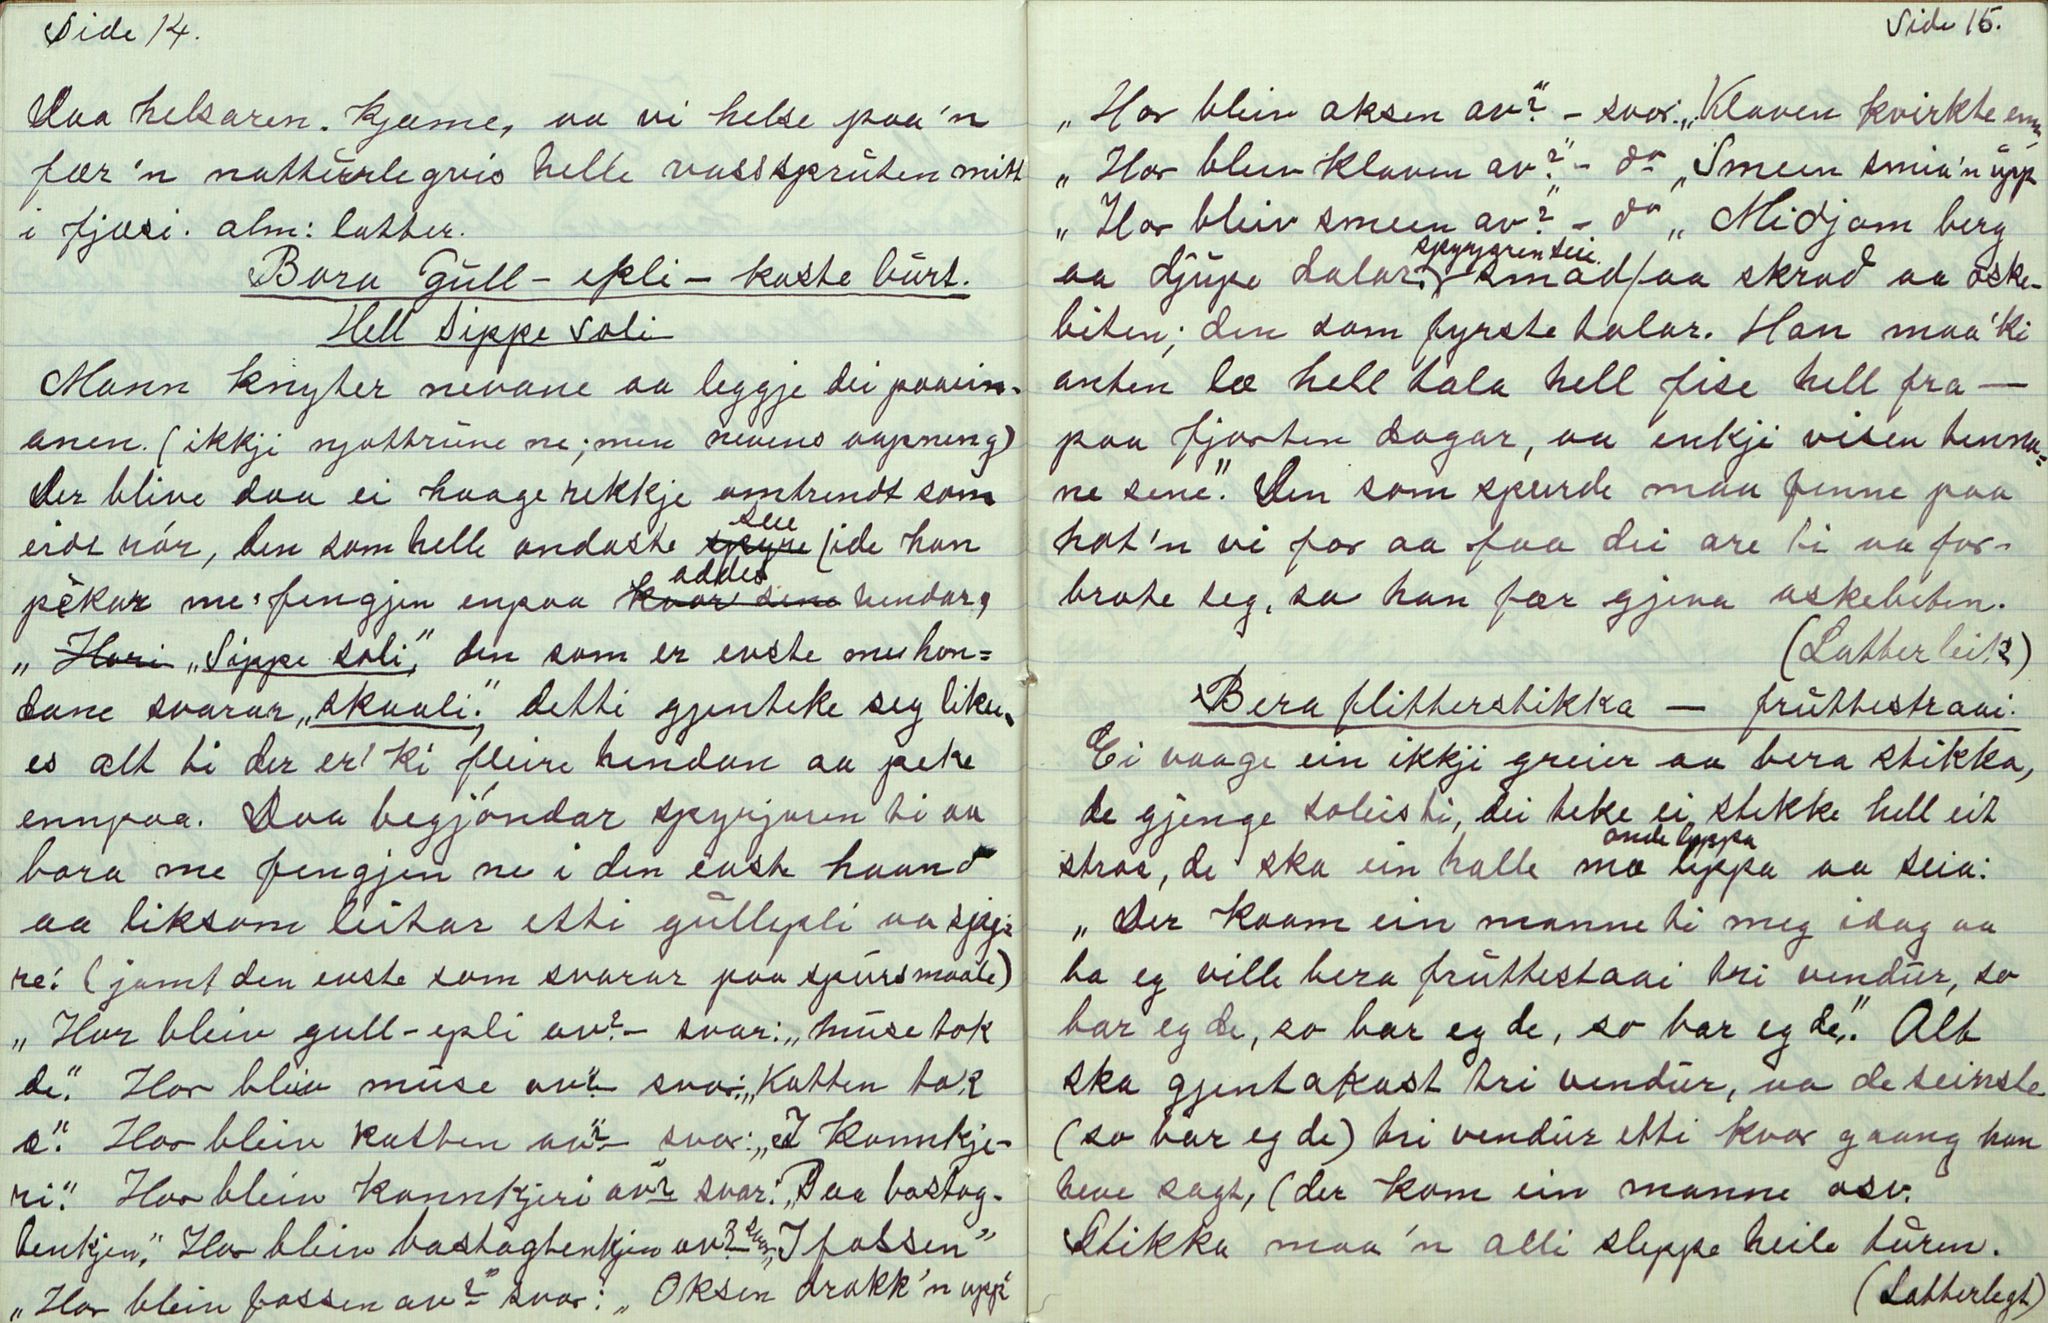 Side 14.
Daa helsaren. kjæme, aa vi helse paa'n
fær'n nattürlegvis helle vassprüten mitt
i fjæsi. alm: latter.
Bara Güll - epli - kaste bürt.
Hell Sippe soli
Mann knyter nevane aa leggje dei paaein-
anen. (ikkji njottrüne ne; men nevens aapneng)
Der blive daa ei haage rekkje omtrendt som
eidt rór, den som helle andaste spyre see (ide han
pèkar me: fengjen enpaa kvar sine addes hendar,
„Hori „Sippe soli", den som er evste me hon=
dane svarar „skaali". detti gjenteke seg like-
es alt ti der er'ki fleire hendan aa peke
ennpaa. Daa begjóndar spyrjaren ti aa
bora me fengjen ne i den evste haand
aa liksom leitar etti güllepli aa spy:
re: (jamt den evste som svarar paa spürsmaale)
„Hor bleiv gull-epli av?- svar: „müse tok
de". Hor bleiv müse av?- svar: „Katten tok
a". Hor bleiv katten av?- svar: „I Kannkje-
ri". Hor bleiv Kannkjeri av?- svar: „Paa bastog-
benkjen," Hor bleiv bastogbenkjen av?- svar „I fossen"
„Hor bleiv fossen av?"- svar: „Oksen drakk'n upp"
Side 15.
„Hor bleiv oksen av?" - svar: „Klaven kvirkte enn,
„Hor bleiv klaven av?"- do „Smeen smia'n üpp
„Hor bleiv smeen av?"- do „Midjom berg
aa djüpe dalar." spyrjaren seie. Smad/aa skrad aa oske-
biten; den som fyrste talar. Han maa'ki
anten læ hell tala hell fise hell fra —
paa fjorten dagar, aa enkji visen tenna=
ne sene". Den som spurde maa finne paa
hot'n vi for aa faa dei are ti aa for-
brote seg, so han fær gjeva askebiten.
(Latterleik)
Bera flitterstikka — früttestraai.
Ei vaage ein ikkji greier aa bera stikka,
de gjenge soleis ti, dei teke ei stikke hell eit
straa, de ska ein halle mæ leppa onde leppa aa seia:
„Der kaam ein manne ti meg idag aa
ba eg ville bera früttestaai tri vendür, so
bar eg de, so bar eg de, so bar eg de". Alt
ska gjentakast tri vendür, aa de seinste
(so bar eg de) tri vendür etti kvor gaang han
heve sagt, (der kom ein manne osv.
Stikka maa'n alli sleppe heile türen.
(Latterlegt)